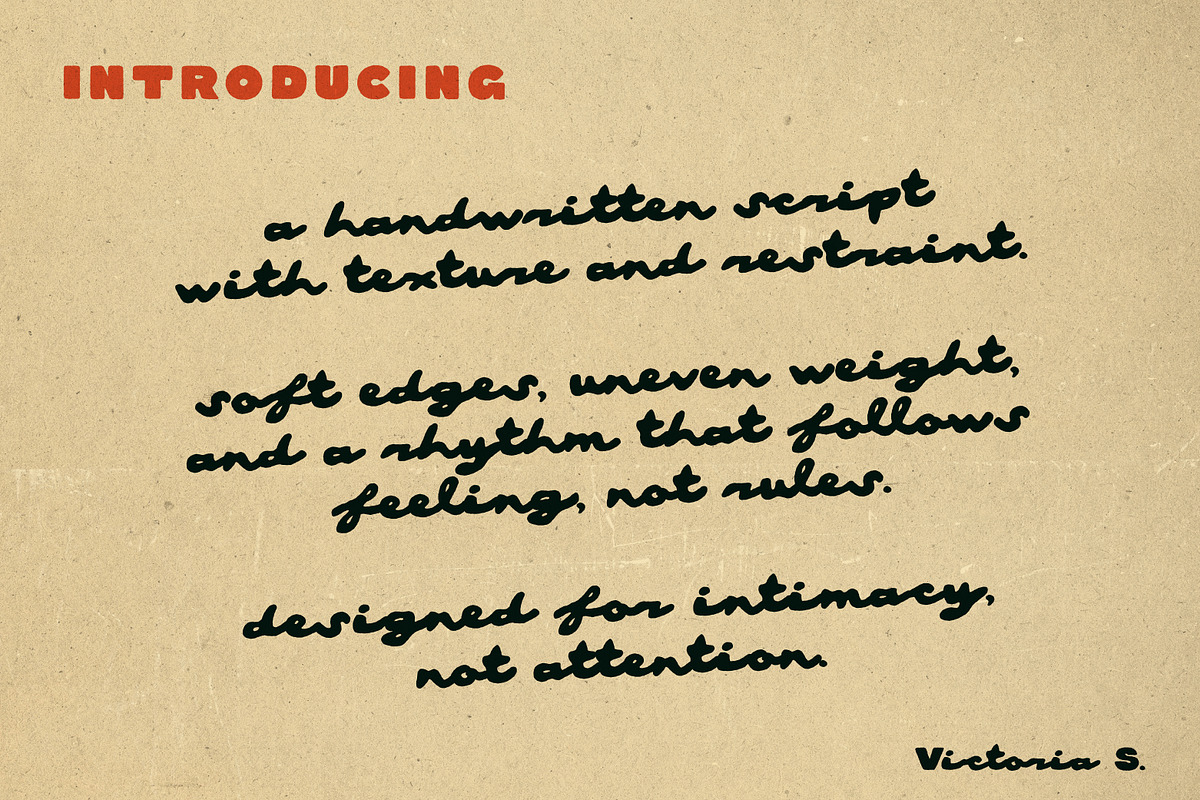 INTRODUCING
a handwritten script
with texture and restraint.
soft edges, uneven weight,
and a rhythm that follows
feeling, not rules.
designed for intimacy,
not attention.
Victoria S.